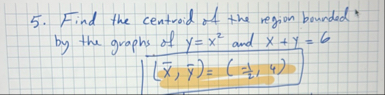 5. Find the centroid of the region bounded
by the graphs of y = x² and x + y = 6
(x̄, ȳ) = (-1/2, 4)